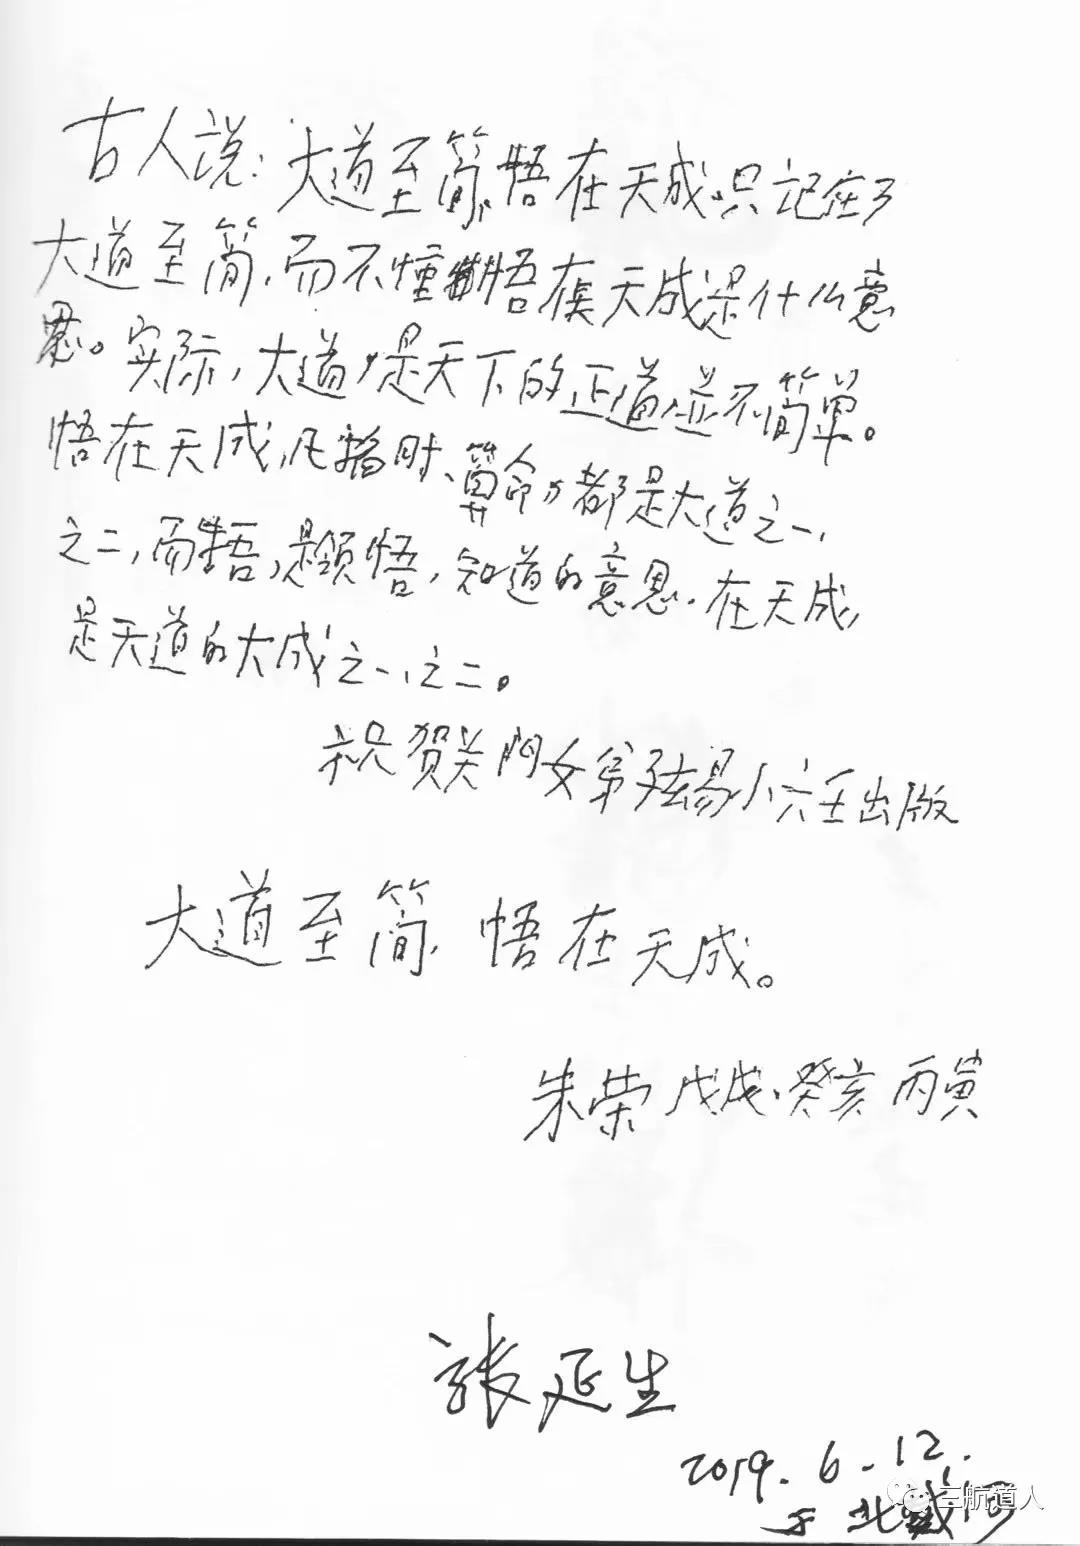 古人说：大道至简，悟在天成。只记在了
大道至简，而不懂悟在天成是什么意
思。实际，大道，是天下的正道，並不简单。
悟在天成，凡指时、算命，都是大道之一、
之二，而悟，是领悟，知道的意思。在天成，
是天道的大成之一、之二。
祝贺关门女弟子弦易小六壬出版
大道至简，悟在天成。
朱荣 戊戌、癸亥 丙寅
张延生
2019.6.12.
于北戴河
三航道人